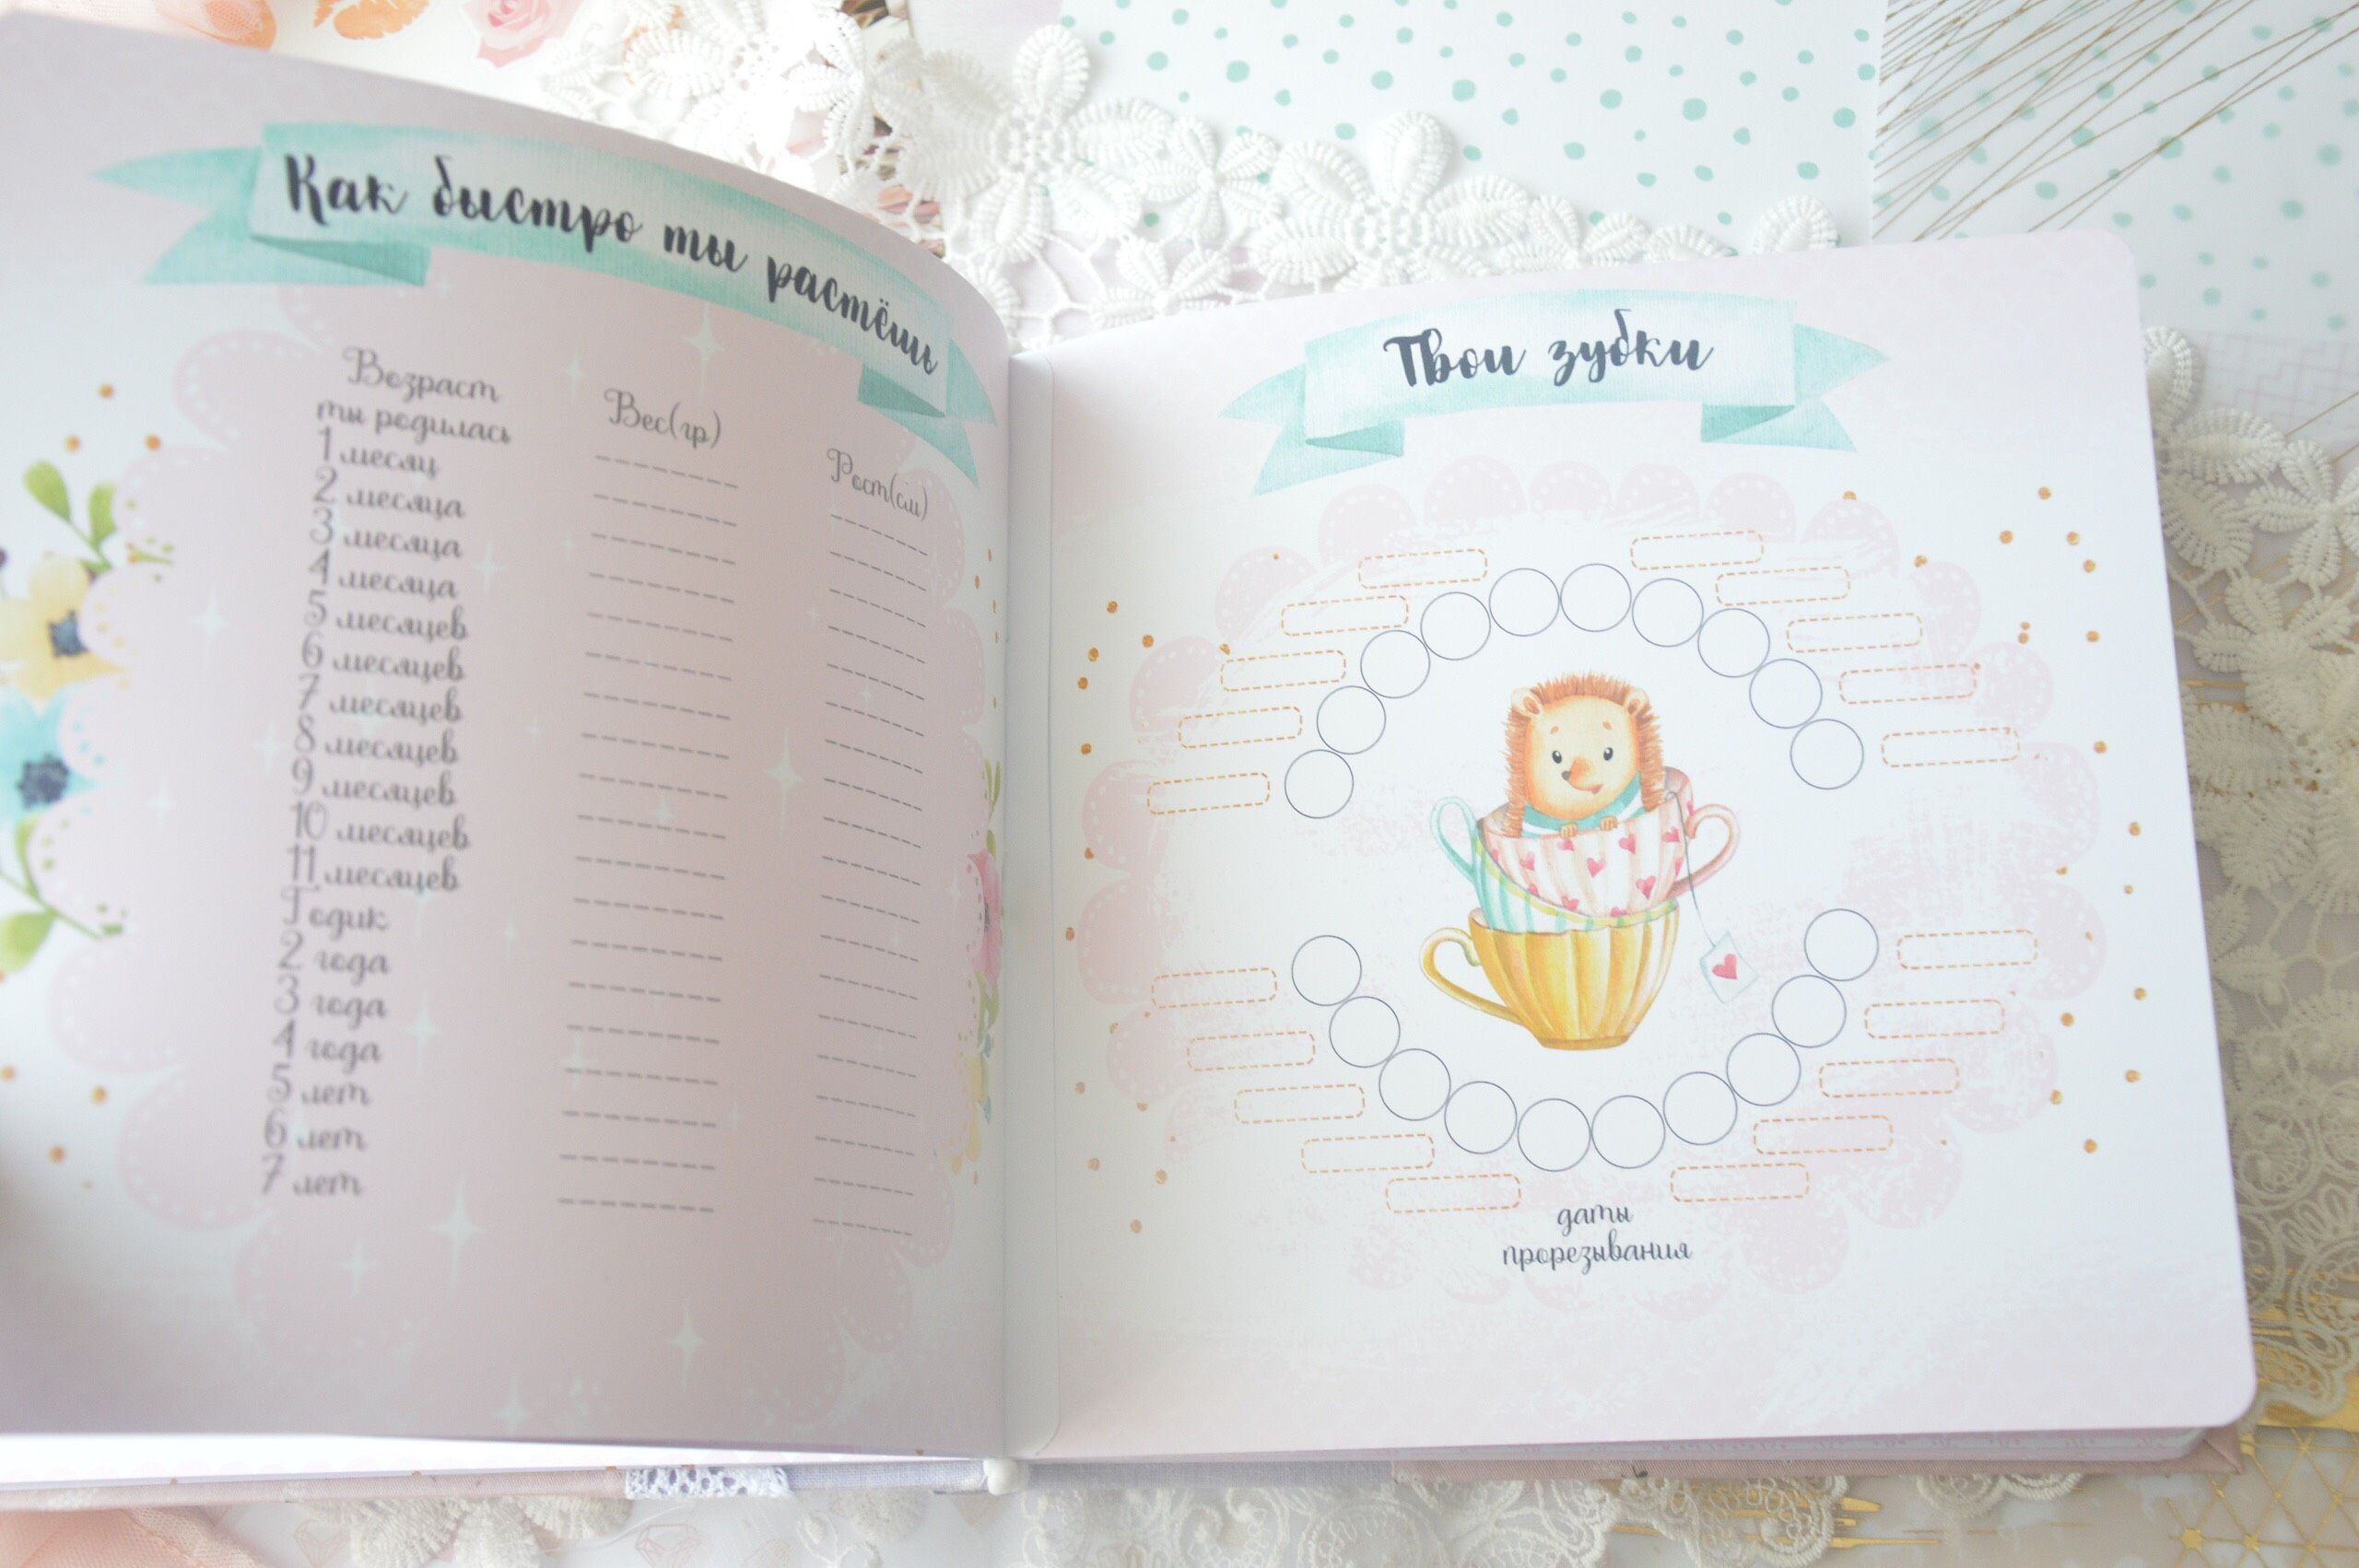 Как быстро ты растёшь
Возраст
Вес(гр)
Рост(см)
ты родилась
1 месяц
2 месяца
3 месяца
4 месяца
5 месяцев
6 месяцев
7 месяцев
8 месяцев
9 месяцев
10 месяцев
11 месяцев
Годик
2 года
3 года
4 года
5 лет
6 лет
7 лет
Твои зубки
даты
прорезывания